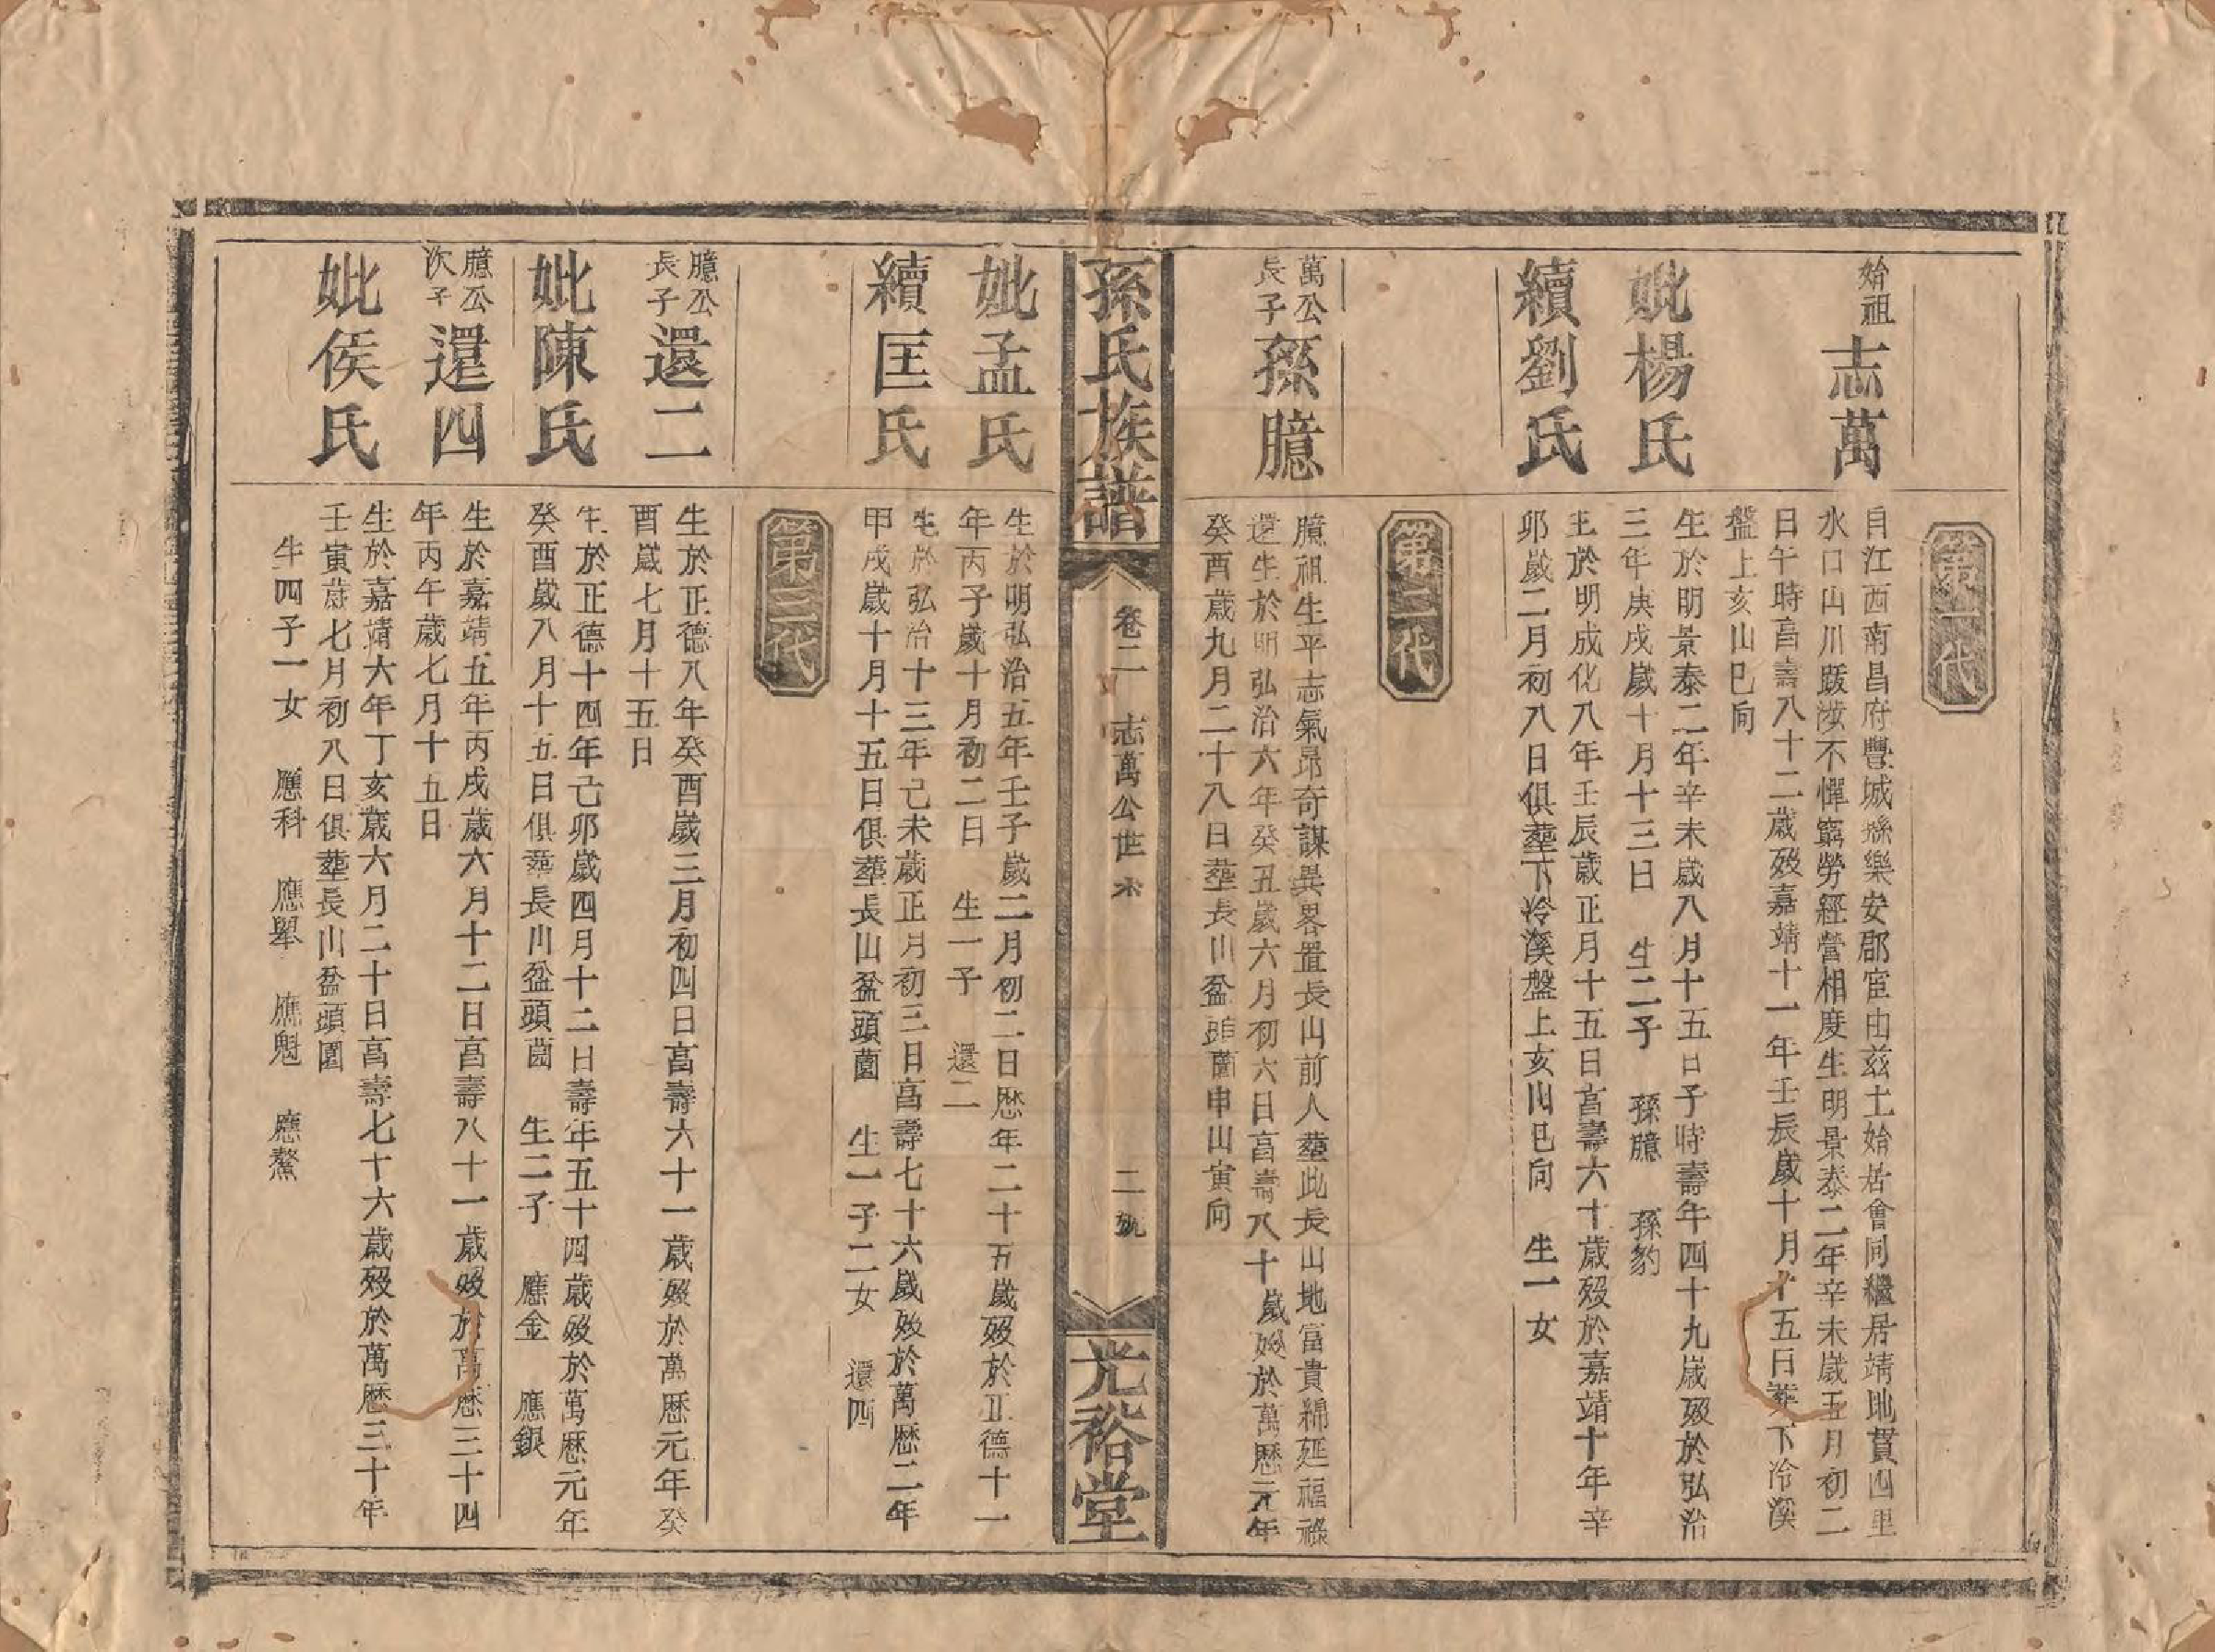 第一代
始祖
志萬
自江西南昌府豐城縣樂安郡宦由兹土始居會同繼居靖地貫四里
水口山川跋涉不憚窮勞經營相度生明景泰二年辛未歲五月初二
日午時高壽八十二歲歿嘉靖十一年壬辰歲十月十五日葬下冷溪
盤上亥山巳向
妣楊氏
生於明景泰二年辛未歲八月十五日子時壽年四十九歲歿於弘治
三年庚戌歲十月十三日 生二子 孫臆 孫豹
續劉氏
生於明成化八年壬辰歲正月十五日高壽六十歲歿於嘉靖十年辛
卯歲二月初八日俱塟下冷溪盤上亥山巳向 生一女
第二代
萬公
長子
孫臆
臆祖生平志氣昂奇謀異畧置長山前人塟此長山地富貴綿延福祿
還生於明弘治六年癸丑歲六月初六日高壽八十歲歿於萬歷元年
癸酉歲九月二十八日塟長川盆頭薗申山寅向
孫氏族譜
卷二 志萬公世系
二號
光裕堂
妣孟氏
生於明弘治五年壬子歲二月初二日歷年二十五歲歿於正德十一
年丙子歲十月初二日 生一子 還二
續匡氏
生於弘治十三年己未歲正月初三日高壽七十六歲歿於萬歷二年
甲戌歲十月十五日俱塟長山盆頭薗 生一子二女 還四
第三代
臆公
長子
還二
生於正德八年癸酉歲三月初四日高壽六十一歲歿於萬歷元年癸
酉歲七月十五日
妣陳氏
生於正德十四年己卯歲四月十二日壽年五十四歲歿於萬歷元年
癸酉歲八月十五日俱塟長川盆頭薗 生二子 應金 應銀
臆公
次子
還四
生於嘉靖五年丙戌歲六月十二日高壽八十一歲歿於萬歷三十四
年丙午歲七月十五日
妣侯氏
生於嘉靖六年丁亥歲六月二十日高壽七十六歲歿於萬歷三十年
壬寅歲七月初八日俱塟長川盆頭園
生四子一女 應科 應舉 應魁 應鰲